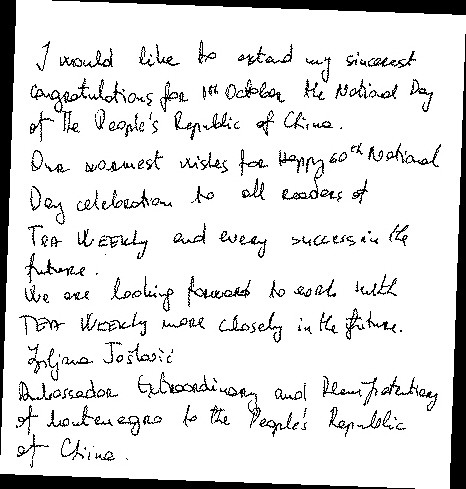 I would like to extend my sincerest
congratulations for 1st October the National Day
of the People's Republic of China.
Our warmest wishes for Happy 60th National
Day celebration to all readers of
TEA WEEKly and every success in the
future.
We are looking forward to work with
TEA WEEKly more closely in the future.
Ljiljana Tošković
Ambassador Extraordinary and Plenipotentiary
of Montenegro to the People's Republic
of China.